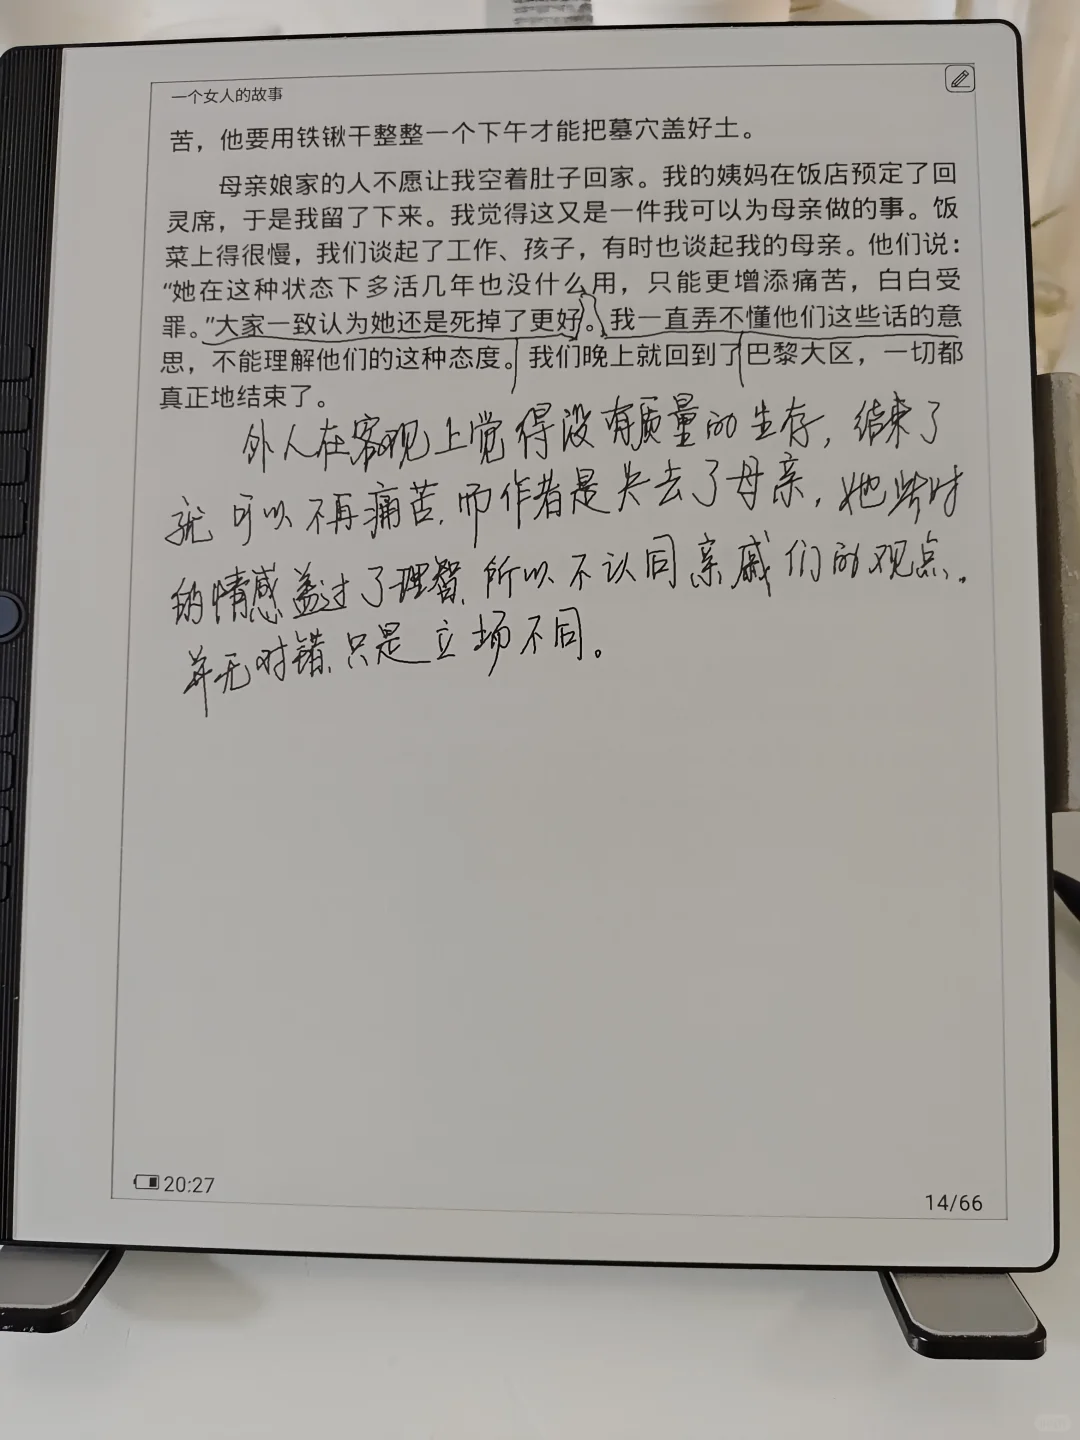 一个女人的故事
苦，他要用铁锹干整整一个下午才能把墓穴盖好土。
母亲娘家的人不愿让我空着肚子回家。我的姨妈在饭店预定了回
灵席，于是我留了下来。我觉得这又是一件我可以为母亲做的事。饭
菜上得很慢，我们谈起了工作、孩子，有时也谈起我的母亲。他们说：
“她在这种状态下多活几年也没什么用，只能更增添痛苦，白白受
罪。”大家一致认为她还是死掉了更好。我一直弄不懂他们这些话的意
思，不能理解他们的这种态度。我们晚上就回到了巴黎大区，一切都
真正地结束了。
外人在客观上觉得没有质量的生存，结束了
就可以不再痛苦，而作者是失去了母亲，她当时
的情感盖过了理智，所以不认同亲戚们的观点。
并无对错，只是立场不同。
20:27
14/66